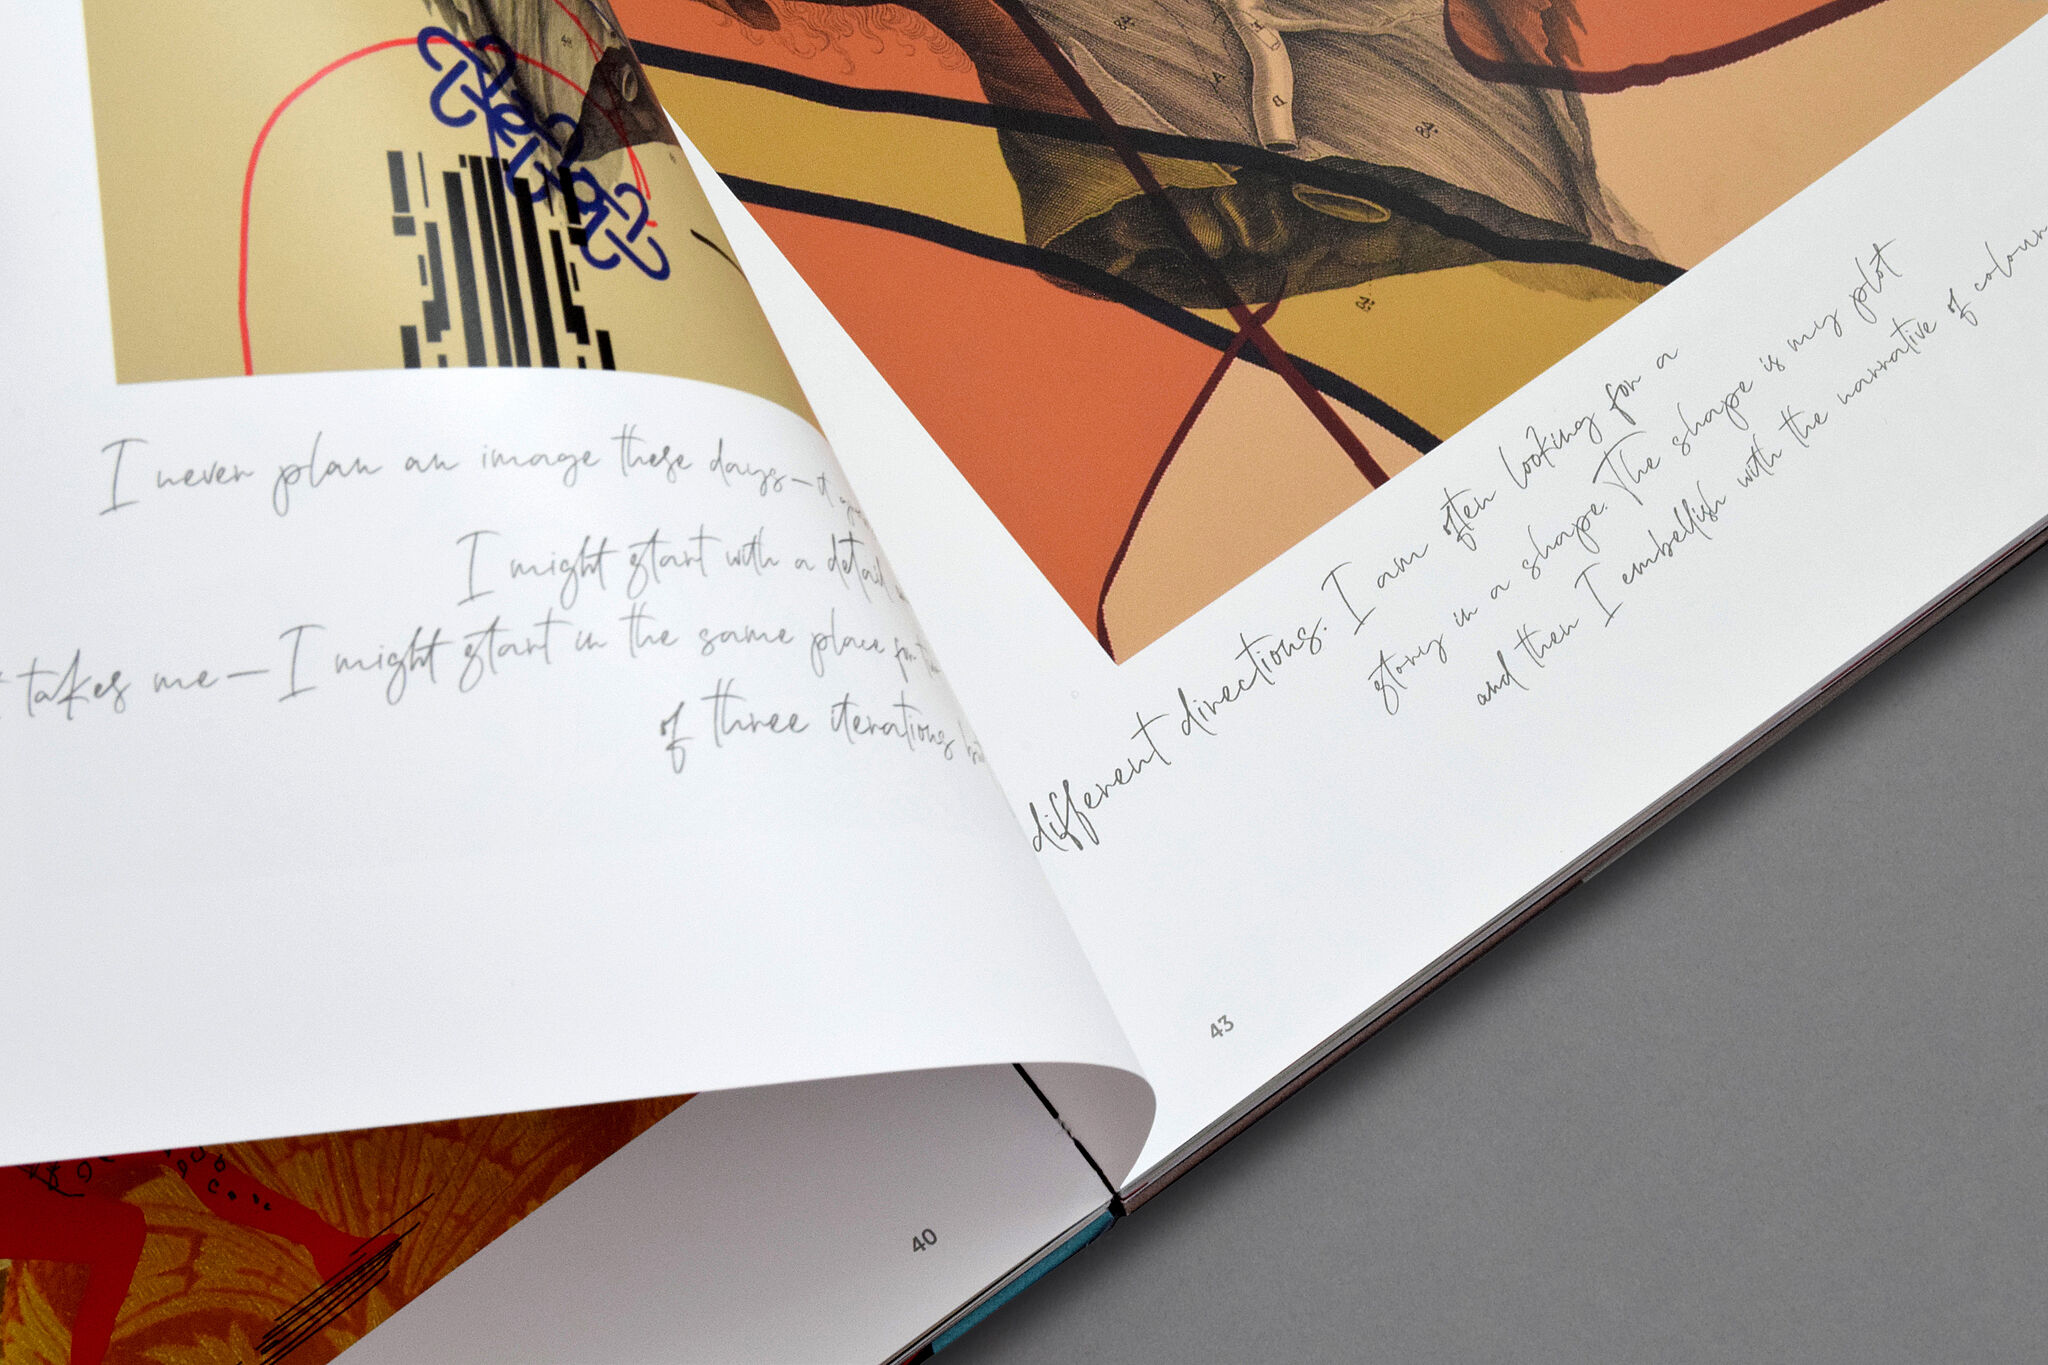 I never plan an image these days—it
I might start with a detail
takes me—I might start in the same place for
of three iterations
different directions. I am often looking for a
story in a shape. The shape is my plot
and then I embellish with the narrative of colour
43
40
84
84
B
84